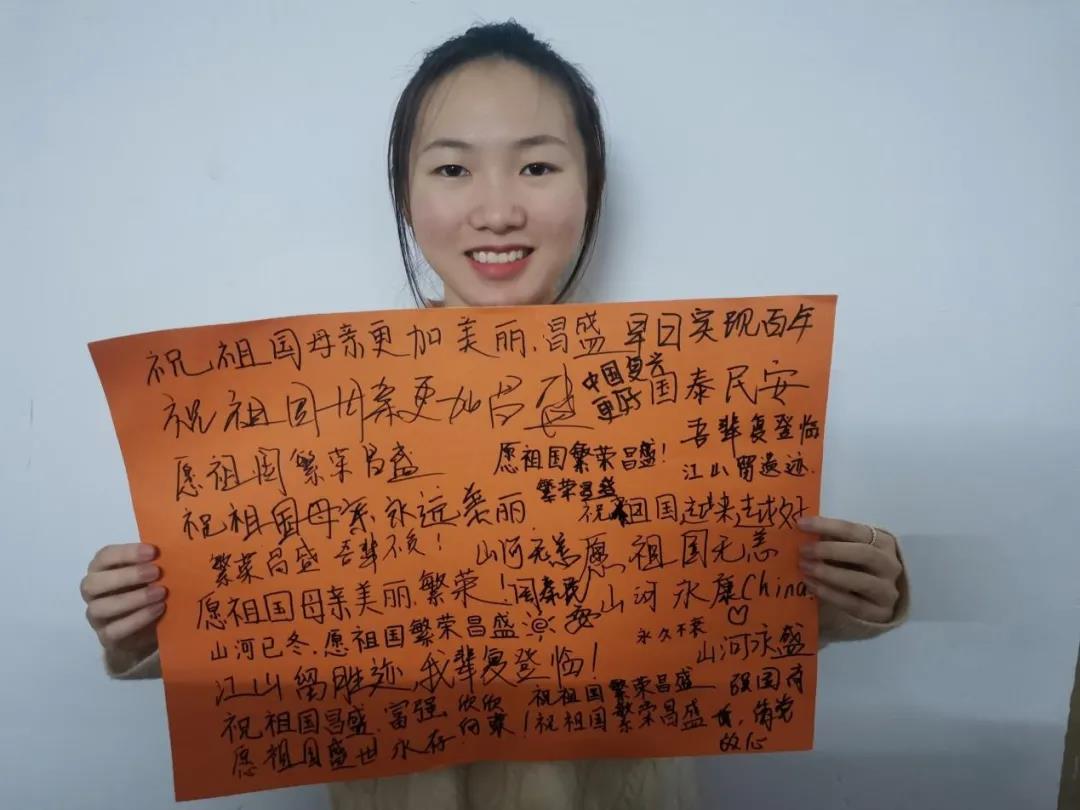 祝祖国母亲更加美丽.昌盛早日实现百年
祝祖国母亲更加昌盛
中国复兴
更好
国泰民安
愿祖国繁荣昌盛
愿祖国繁荣昌盛!
吾辈复登临
江山留遗迹.
祝祖国母亲永远美丽.
繁荣昌盛
祝祖国越来越好
繁荣昌盛 吾辈不矣!
山河无恙
愿祖国无恙
愿祖国母亲美丽.繁荣!
国泰民
安
山河永康China.
山河已冬.愿祖国繁荣昌盛
永久不衰
山河永盛
江山留胜迹 我辈复登临!
祝祖国昌盛.富强 欣欣
向荣!
祝祖国繁荣昌盛
祝祖国繁荣昌盛
强国有
我,请党
放心
愿祖国盛世永存.